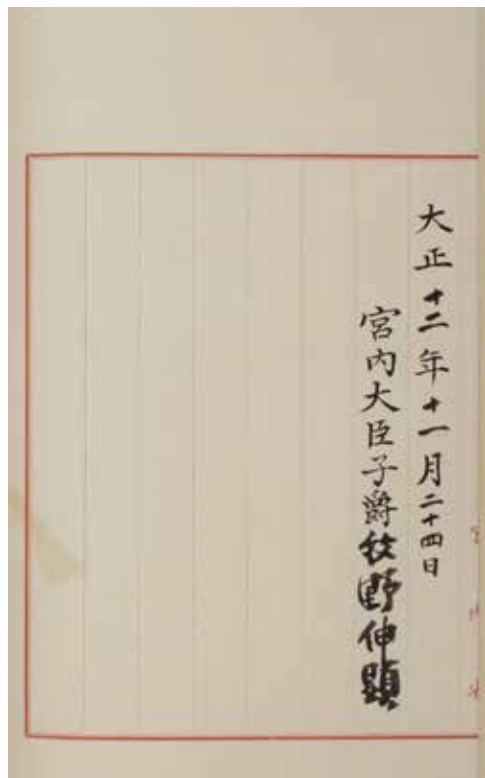 大正十二年十一月二十四日
宮内大臣子爵牧野伸顕